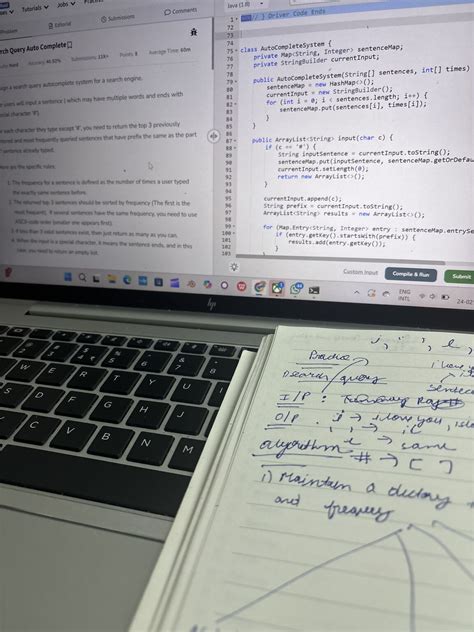 Tutorials
Jobs
Practice
Java (1.8)
Editorial
Submissions
Comments
rch Query Auto Complete
Hard Accuracy: 44.92% Submissions: 11K+ Points: 8 Average Time: 60m
sign a search query autocomplete system for a search engine.
e users will input a sentence ( which may have multiple words and ends with
cial character '#').
each character they type except '#', you need to return the top 3 previously
tered and most frequently queried sentences that have prefix the same as the part
sentence already typed.
ere are the specific rules:
1. The frequency for a sentence is defined as the number of times a user typed
the exactly same sentence before.
2. The returned top 3 sentences should be sorted by frequency (The first is the
most frequent). If several sentences have the same frequency, you need to use
ASCII-code order (smaller one appears first).
3. If less than 3 valid sentences exist, then just return as many as you can.
4. When the input is a special character, it means the sentence ends, and in this
case, you need to return an empty list.
// } Driver Code Ends
72
73
74 class AutoCompleteSystem {
75 private Map<String, Integer> sentenceMap;
76 private StringBuilder currentInput;
77
78 public AutoCompleteSystem(String[] sentences, int[] times)
79 sentenceMap = new HashMap<>();
80 currentInput = new StringBuilder();
81 for (int i = 0; i < sentences.length; i++) {
82 sentenceMap.put(sentences[i], times[i]);
83 }
84 }
85
86
87 public ArrayList<String> input(char c) {
88 if (c == '#') {
89 String inputSentence = currentInput.toString();
90 sentenceMap.put(inputSentence, sentenceMap.getOrDefau
91 currentInput.setLength(0);
92 return new ArrayList<>();
93 }
94
95 currentInput.append(c);
96 String prefix = currentInput.toString();
97 ArrayList<String> results = new ArrayList<>();
98
99 for (Map.Entry<String, Integer> entry : sentenceMap.entrySe
100 if (entry.getKey().startsWith(prefix)) {
101 results.add(entry.getKey());
102 }
103 }
Custom Input
Compile & Run
Submit
ENG
INTL
24-02
hp
Practice
Search/query
I/P :
O/P . i → i love you,
algorithm
# → [ ]
i) Maintain a
and
W E R T Y U
S D F G H J
C V B N M